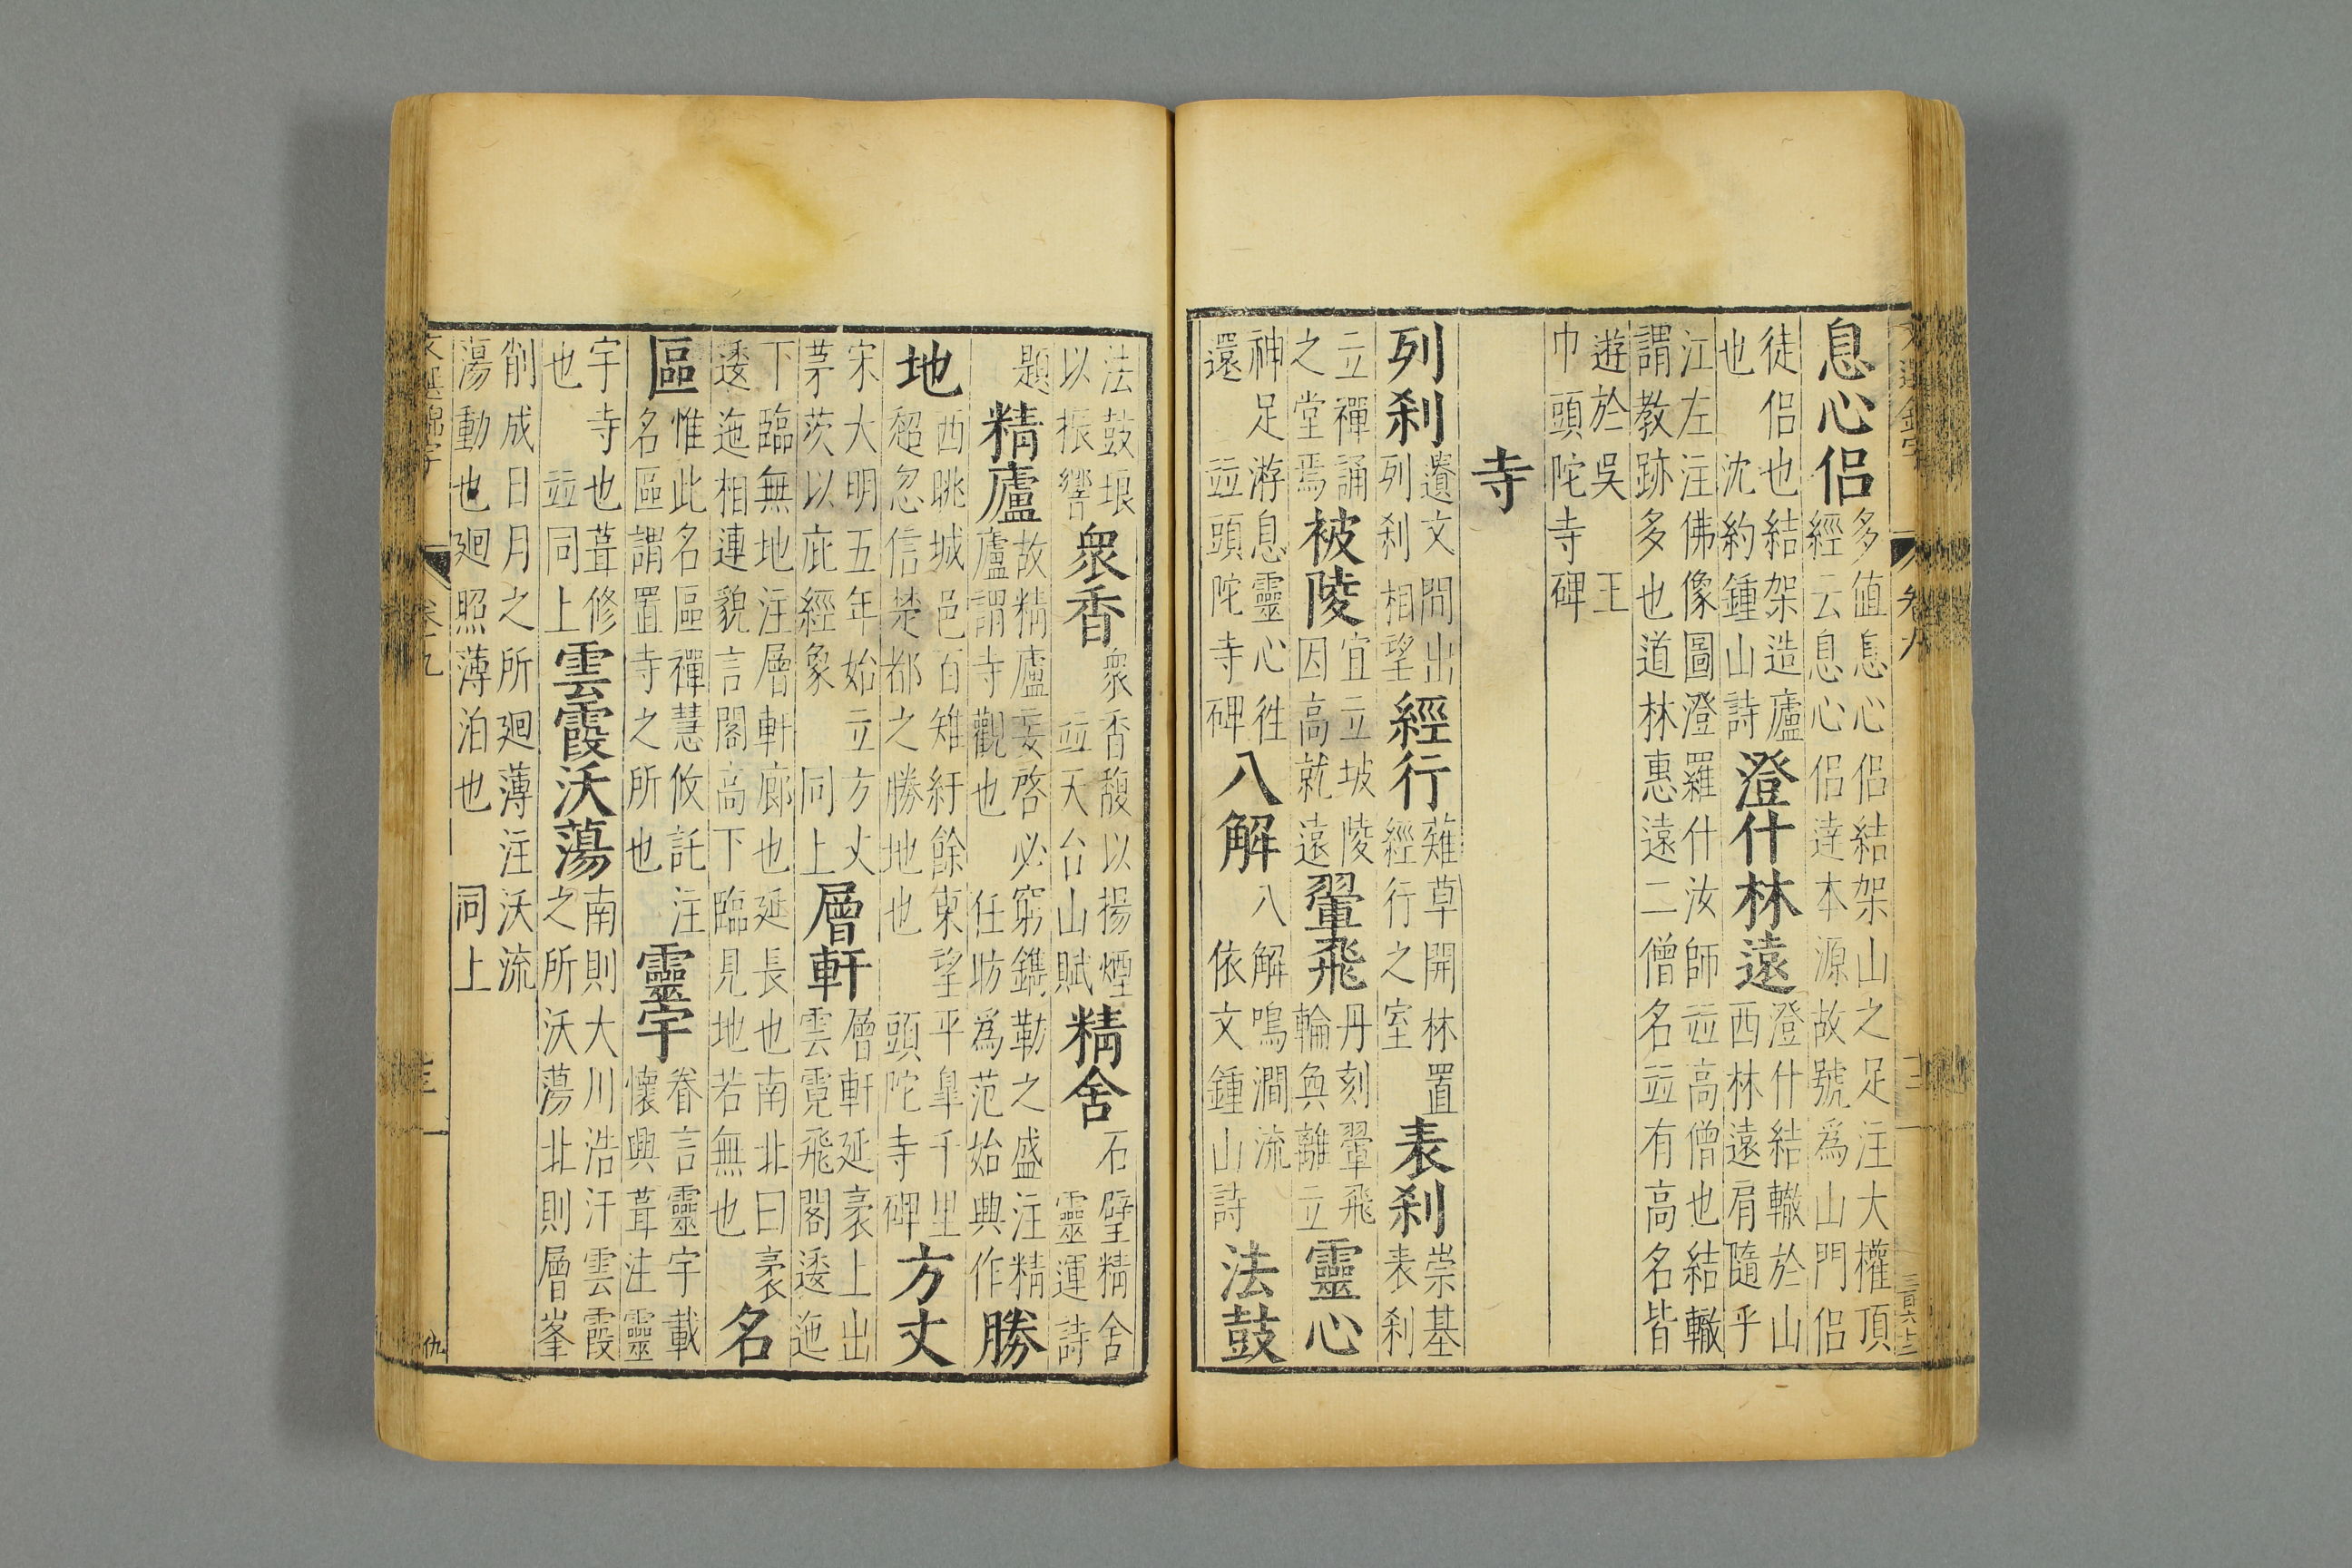 息心侶 多值息心侶結架山之足注大權頂經云息心侶達本源故號爲山門侶
徒侶也結架造廬也 沈約鍾山詩 澄什林遠 澄什結轍於山西林遠肩隨乎
江左注佛像圖澄羅什汝師並高僧也結轍謂教跡多也道林惠遠二僧名並有高名皆
遊於吳 王巾頭陀寺碑
寺
列刹 遺文間出列刹相望 經行 薙草開林置經行之室 表刹 崇基表刹
立禪誦之堂焉 被陵 宜立坡陵因高就遠 翬飛 丹刻翬飛輪奐離立 靈心
神足游息靈心往還 並頭陀寺碑 八解 八解鳴澗流 依文鍾山詩 法鼓
法鼓琅以振響 衆香 衆香馥以揚煙 並天台山賦 精舍 石壁精舍 靈運詩
題 精廬 故精廬妄啓必窮鐫勒之盛注精廬謂寺觀也 任昉爲范始興作 勝
地 西眺城邑百雉紆餘東望平皐千里超忽信楚都之勝地也 頭陀寺碑 方丈
宋大明五年始立方丈茅茨以庇經象 同上 層軒 層軒延袤上出雲霓飛閣逶迤
下臨無地注層軒廊也延長也南北曰袤逶迤相連貌言閣高下臨見地若無也 名
區 惟此名區禪慧攸託注名區謂置寺之所也 靈宇 眷言靈宇載懷興葺注靈
宇寺也葺修也 並同上 雲霞沃蕩 南則大川浩汗雲霞之所沃蕩北則層峯
削成日月之所廻薄注沃流蕩動也廻照薄泊也 同上